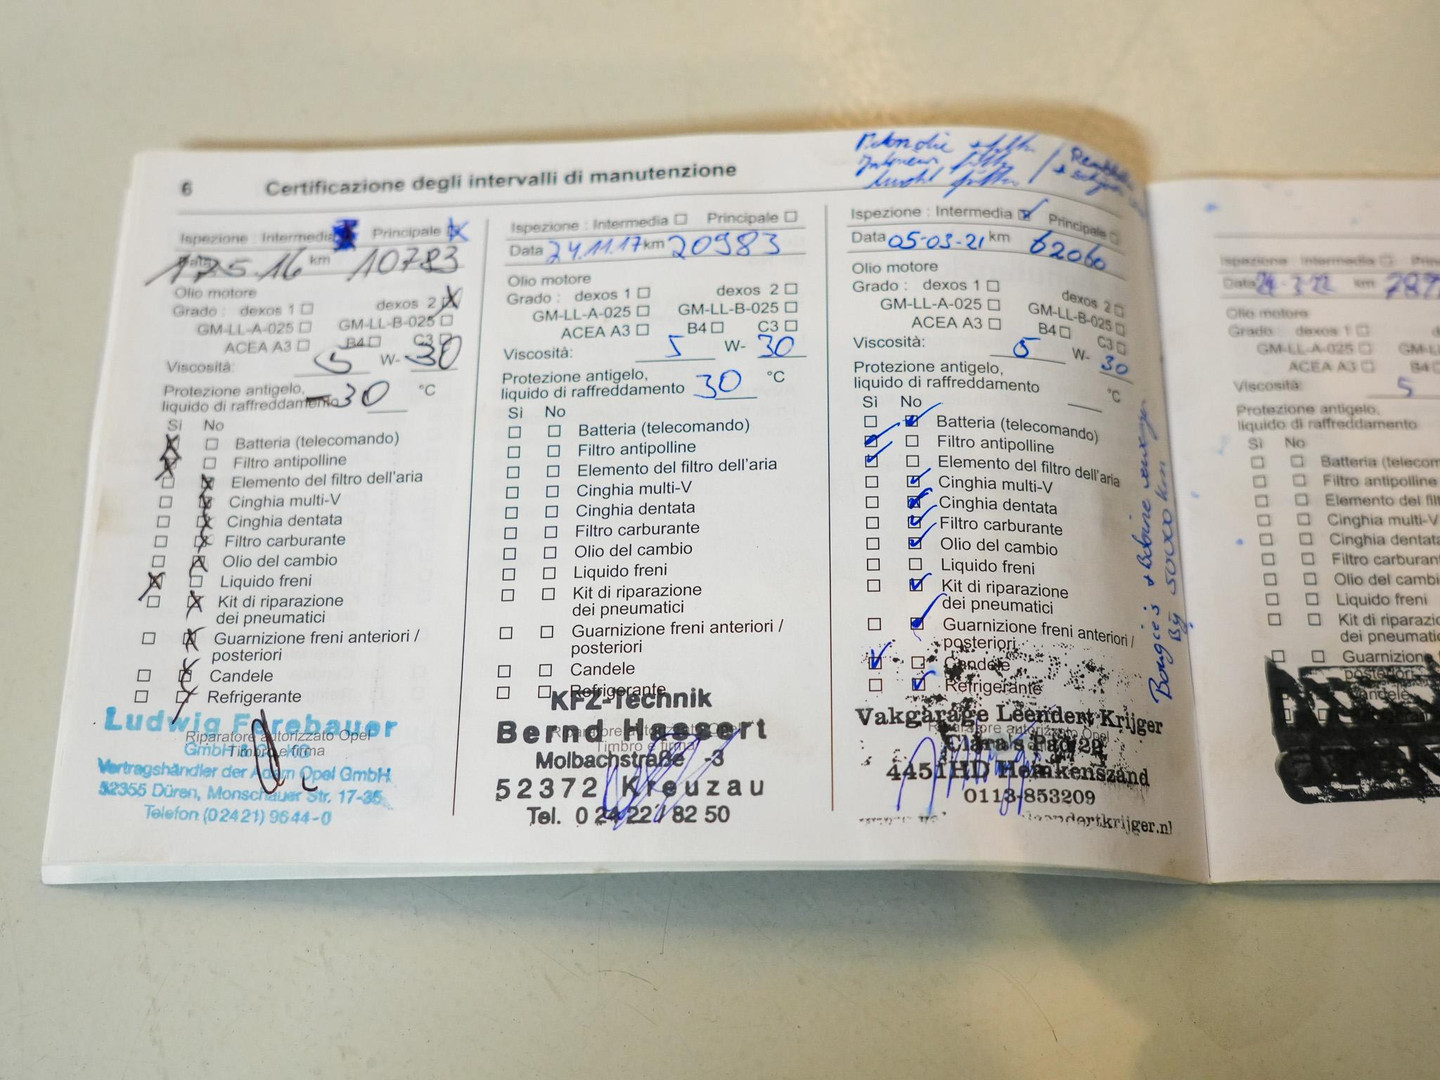 6 Certificazione degli intervalli di manutenzione
Ispezione : Intermedia Principale
17.5.16 km 10783
Olio motore
Grado : dexos 1 dexos 2
GM-LL-A-025 GM-LL-B-025
ACEA A3 B4 C3
Viscosità: 5 W- 30
Protezione antigelo,
liquido di raffreddamento -30 °C
Sì No
Batteria (telecomando)
Filtro antipolline
Elemento del filtro dell'aria
Cinghia multi-V
Cinghia dentata
Filtro carburante
Olio del cambio
Liquido freni
Kit di riparazione
dei pneumatici
Guarnizione freni anteriori /
posteriori
Candele
Refrigerante
Riparatore autorizzato Opel
Timbro e firma
Ludwig
GmbH & Co. KG
Vertragshändler der Adam Opel GmbH
52355 Düren, Monschauer Str. 17-35
Telefon (02421) 9644-0
Ispezione : Intermedia Principale
Data 24.11.17 km 20983
Olio motore
Grado : dexos 1 dexos 2
GM-LL-A-025 GM-LL-B-025
ACEA A3 B4 C3
Viscosità: 5 W- 30
Protezione antigelo,
liquido di raffreddamento 30 °C
Sì No
Batteria (telecomando)
Filtro antipolline
Elemento del filtro dell'aria
Cinghia multi-V
Cinghia dentata
Filtro carburante
Olio del cambio
Liquido freni
Kit di riparazione
dei pneumatici
Guarnizione freni anteriori /
posteriori
Candele
Refrigerante
KFZ-Technik
Bernd Hassert
Molbachstraße -3
52372 Kreuzau
Tel. 0 24 22 / 82 50
Ispezione : Intermedia Principale
Data 05-03-21 km 62060
Olio motore
Grado : dexos 1 dexos 2
GM-LL-A-025 GM-LL-B-025
ACEA A3 B4 C3
Viscosità: 5 W- 30
Protezione antigelo,
liquido di raffreddamento °C
Sì No
Batteria (telecomando)
Filtro antipolline
Elemento del filtro dell'aria
Cinghia multi-V
Cinghia dentata
Filtro carburante
Olio del cambio
Liquido freni
Kit di riparazione
dei pneumatici
Guarnizione freni anteriori /
posteriori
Candele
Refrigerante
Riparatore autorizzato Opel
Vakgarage Leendert Krijger
Clara's Pad 22
4451HD Heinkenszand
0113-853209
leendertkrijger.nl
Bougie's + Bobine
By 50000 km
Ispezione : Intermedia
Data km
Olio motore
Grado : dexos 1
GM-LL-A-025
ACEA A3
Viscosità: 5
Protezione antigelo,
liquido di raffreddamento
Sì No
Batteria
Filtro antipolline
Elemento del
Cinghia multi-V
Cinghia dentata
Filtro
Olio del
Liquido freni
Kit di
dei pneumatici
Candele